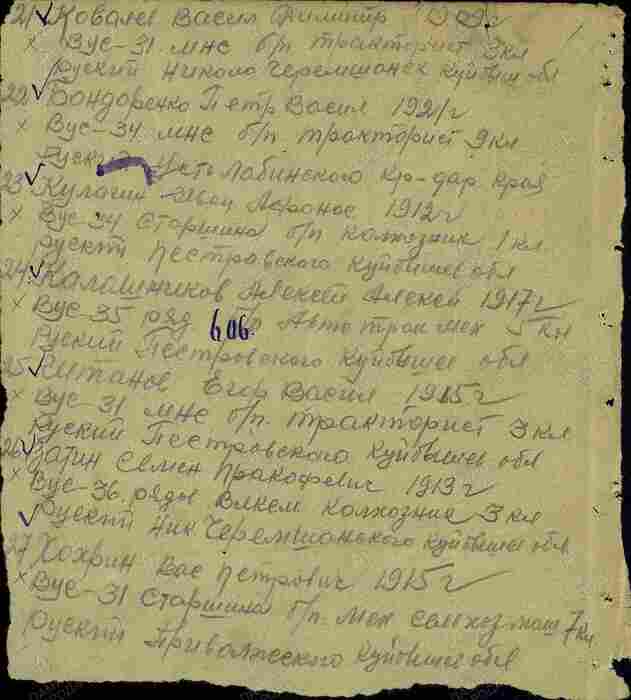 21 Ковалев Васил Филиппр 1909г
Вус-31 мнс б/п тракторист 3 кл
руский Николо Черемшанск Куйбыш обл
22 Бондоренко Петр Васил 1921г
Вус-34 мнс б/п тракторист 9 кл
Руский Усть Лабинского Кр-дар края
23 Кулагин Иван Афонас 1912г
Вус-34 Старшина б/п колхозник 1 кл
руский Пестровского Куйбышев обл
24 Калашников Алексей Алексей 1917г
Вус-35 ряд б/п Автотракмех 5 кл
606.
Руский Пестровского Куйбышев обл
25 Китанов Егор Васил 1915г
Вус-31 мнс б/п. тракторист 3 кл
Руский Пестровского Куйбышев обл
26 Затин Семен Пракофевич 1913г
Вус-36 ряды Влксм колхозник 3 кл
Руский Ник Черемшанского Куйбышев обл
27 Хохрин Вас Петрович 1915г
Вус-31 Старшина б/п. мех селхоз маш 7 кл
руский Приволжского Куйбышев обл